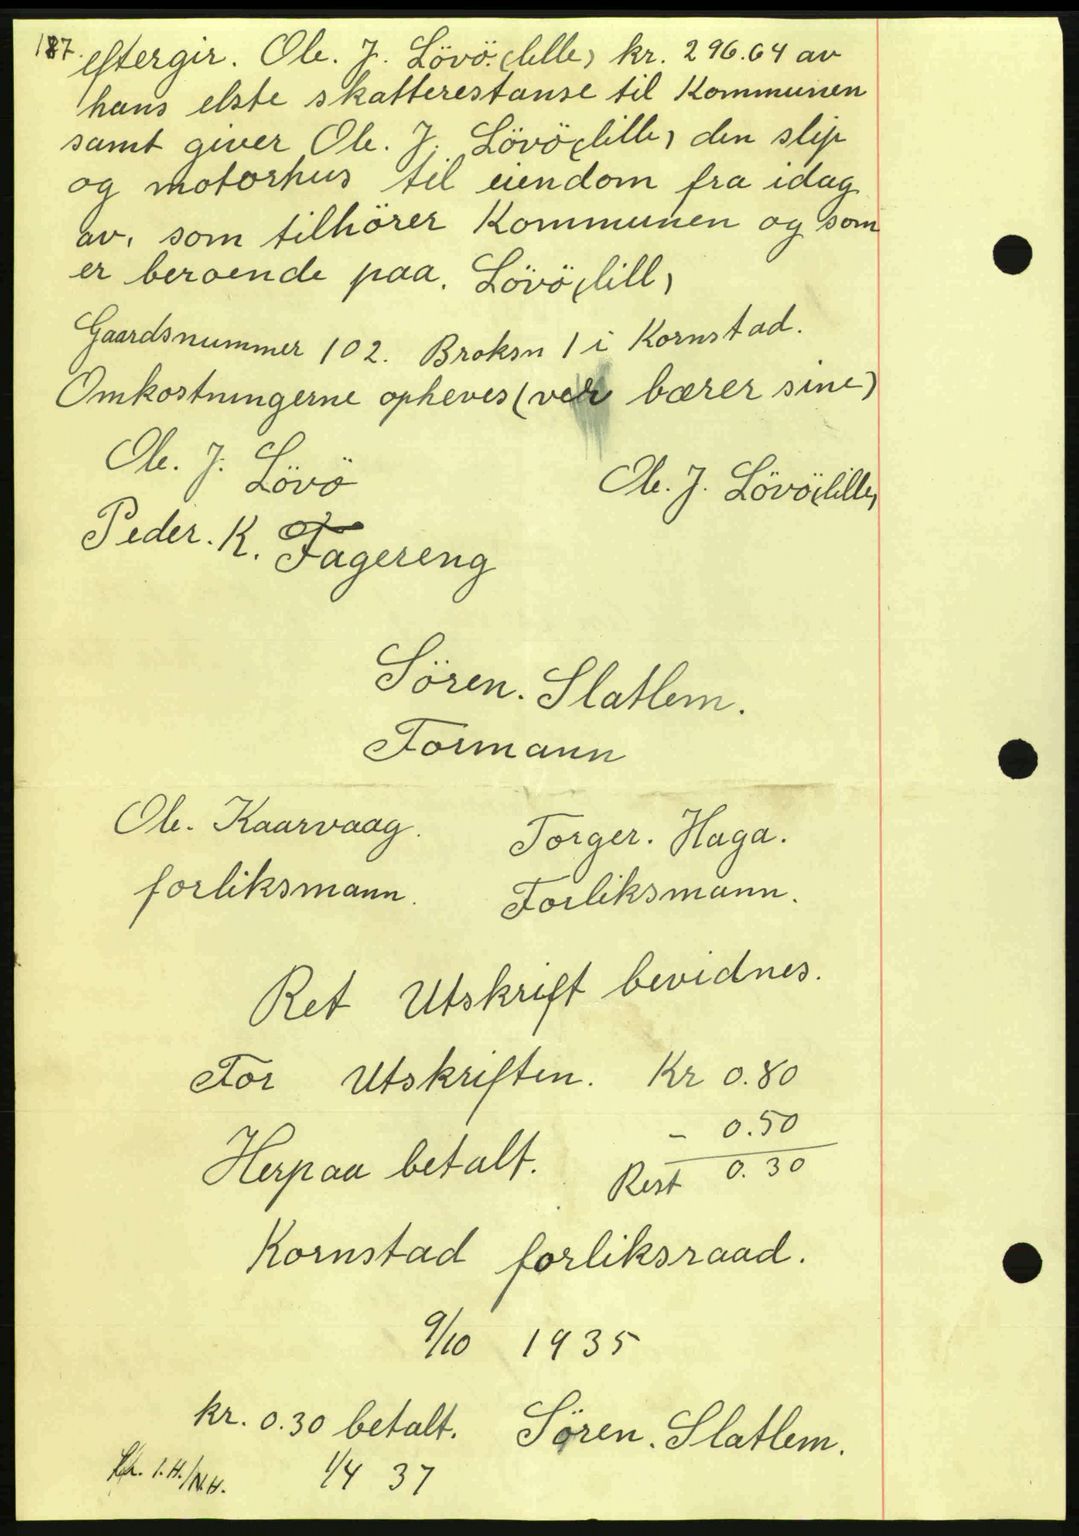 187.
eftergir. Ole. J. Lövö. (lille) kr. 296.64 av
hans elste skatterestanse til Kommunen
samt giver Ole. J. Lövö (lille) den slip
og motorhus til eiendom fra idag
av, som tilhörer Kommunen og som
er beroende paa. Lövö (lill)
Gaardsnummer 102. Broksn 1 i Kornstad.
Omkostningerne opheves (ver bærer sine)
Ole. J. Lövö
Ole. J. Lövö (lille)
Peder. K. Fagereng
Sören. Slatlem.
Formann
Ole. Kaarvaag.
Torger. Haga.
forliksmann.
Forliksmann.
Ret Utskrift bevidnes.
For Utskriften. Kr 0.80
Herpaa betalt. - 0.50
Rest 0.30
Kornstad forliksraad.
9/10 1935
kr. 0.30 betalt. Sören. Slatlem.
I.H./N.H. 1/4 37